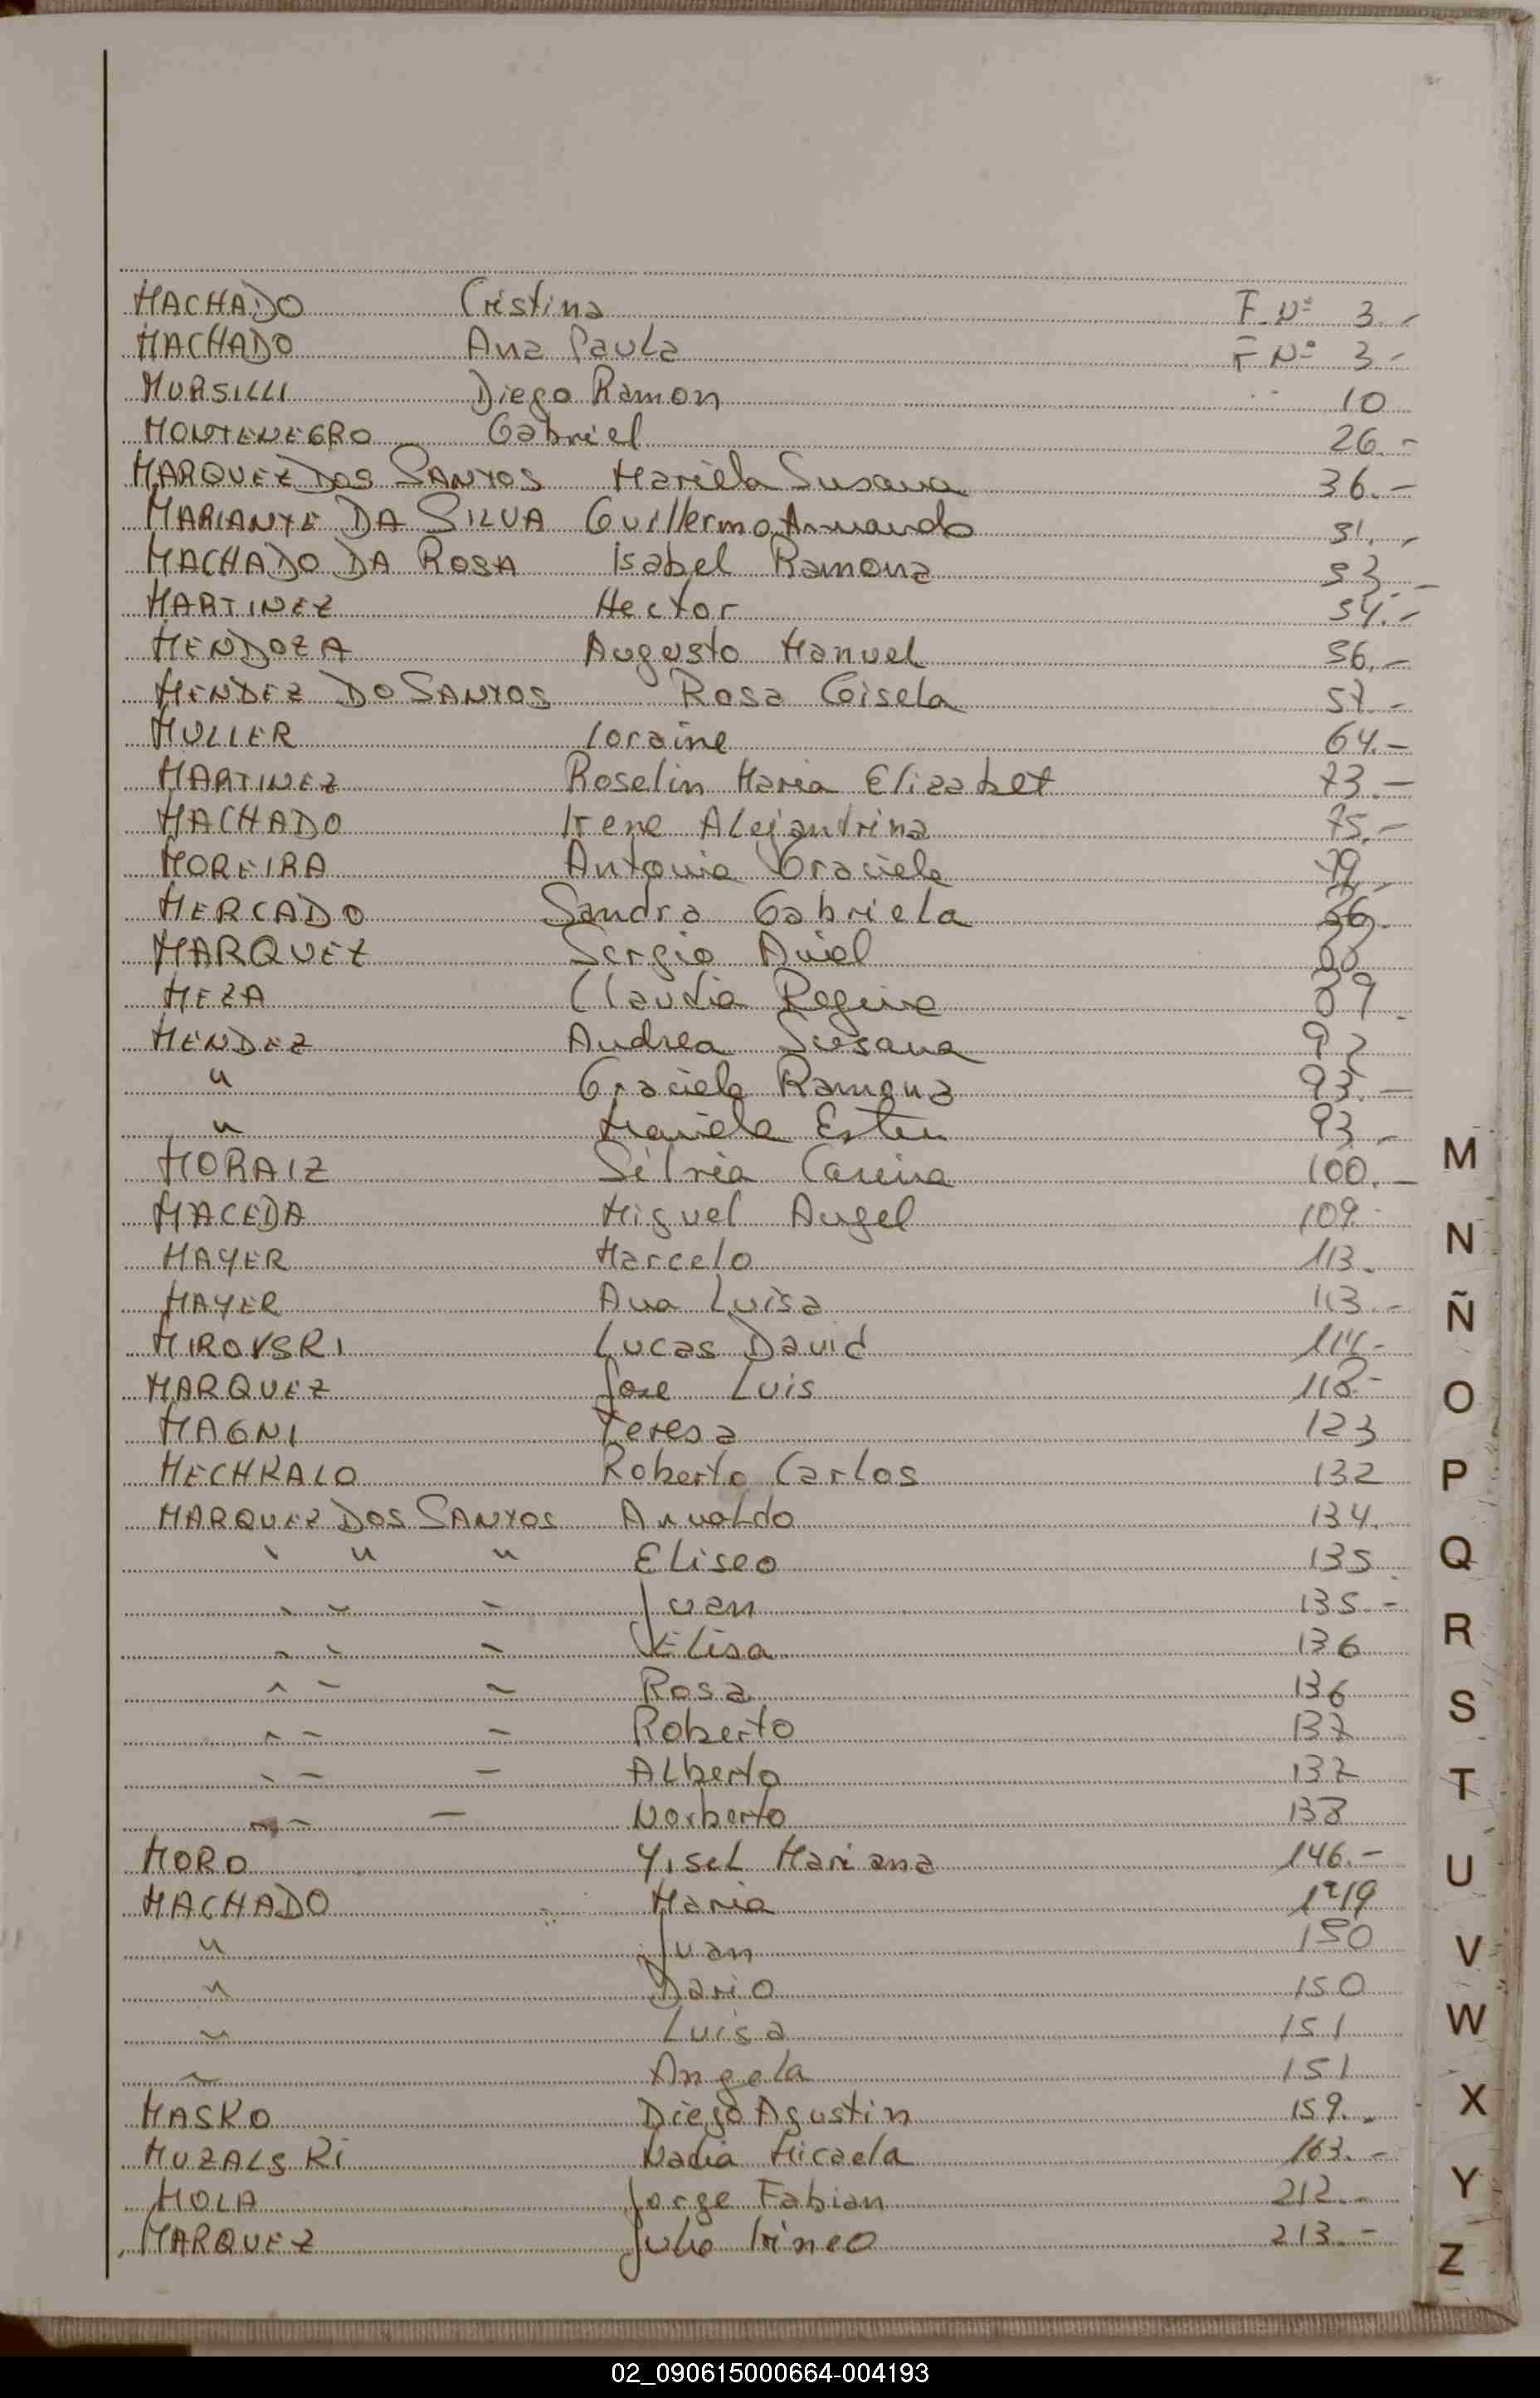 MACHADO Cristina F. Nº 3.-
MACHADO Ana Paula F Nº 3.-
MURSILLI Diego Ramon 10
MONTENEGRO Gabriel 26.-
MARQUEZ DOS SANTOS Mariela Susana 36.-
MARIANTE DA SILVA Guillermo Armando 51.-
MACHADO DA ROSA Isabel Ramona 53.-
MARTINEZ Hector 54.-
MENDOZA Augusto Manuel 56.-
MENDEZ DO SANTOS Rosa Gisela 57.-
MULLER Loraine 64.-
MARTINEZ Roselin Maria Elizabet 73.-
MACHADO Irene Alejandrina 75.-
MOREIRA Antonia Graciela 79
MERCADO Sandra Gabriela
MARQUEZ Sergio Ariel
MEZA Claudia Regina 89.
MENDEZ Andrea Susana 92
" Graciela Ramona 93.-
" Mariela Ester 93.-
MORAIZ Silvia Carina 100.-
MACEDA Miguel Angel 109.
MAYER Marcelo 113.
MAYER Ana Luisa 113.-
MIROVSKI Lucas David 114.-
MARQUEZ Jose Luis 118-
MAGNI Teresa 123
MECHKALO Roberto Carlos 132
MARQUEZ DOS SANTOS Arnoldo 134.
" " " Eliseo 135
" " " Juan 135.-
" " " Elisa 136
" " " Rosa 136
" " " Roberto 137
" " " Alberto 137
" " " Norberto 138
MORO Yisel Mariana 146.-
MACHADO Maria 149
" Juan 150
" Dario 150
" Luisa 151
" Angela 151
MASKO Diego Agustin 159.-
MUZALSKI Nadia Micaela 163.-
MOLA Jorge Fabian 212.-
MARQUEZ Julio Irineo 213.-
M
N
Ñ
O
P
Q
R
S
T
U
V
W
X
Y
Z
02_090615000664-004193